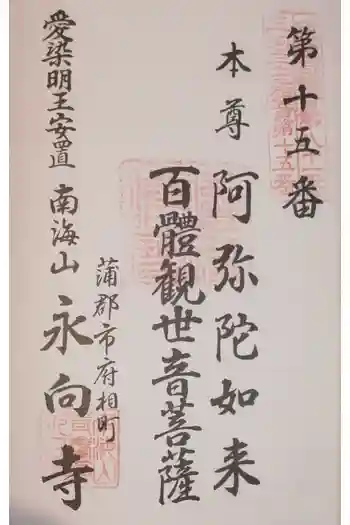 第十五番
本尊 阿弥陀如来
百體観世音菩薩
蒲郡市府相町
愛染明王安置 南海山 永向寺